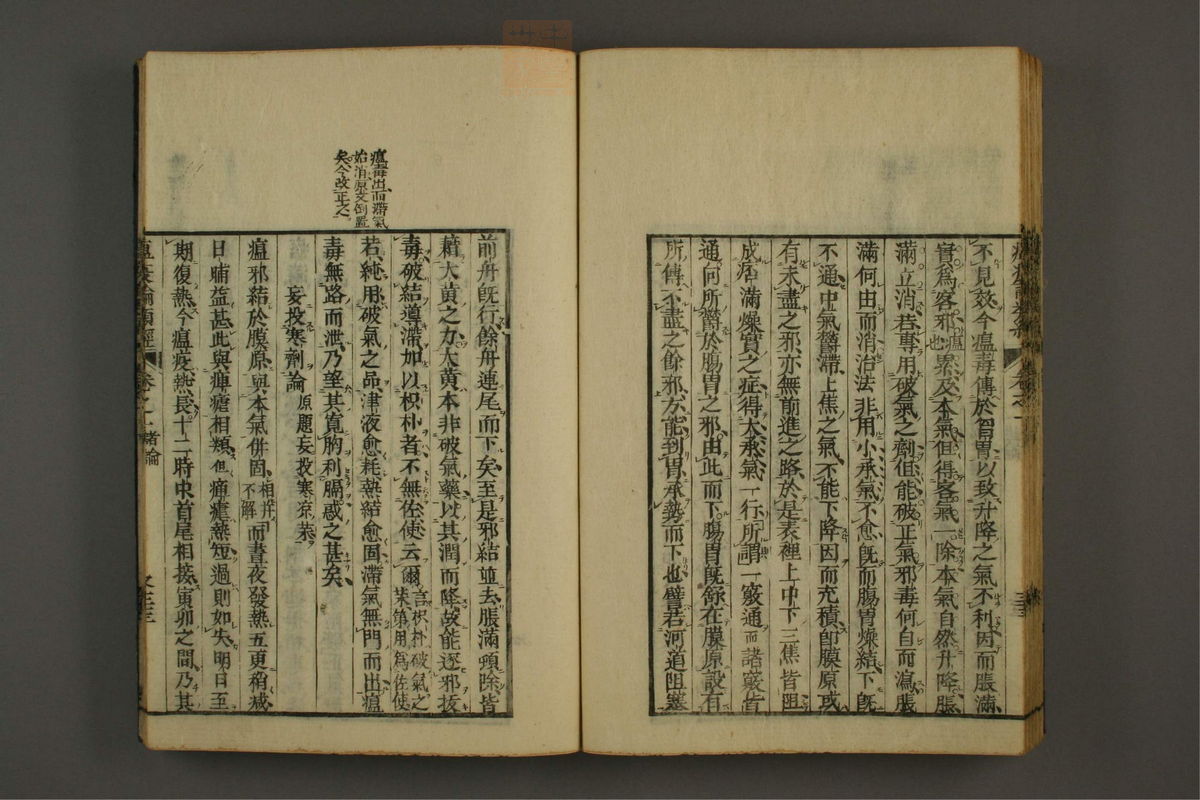 不見效今瘟毒傳於胷胃以致升降之氣不利因而脹滿
實爲客邪瘟也累及本氣但得客氣一除本氣自然升降脹
滿立消若專用破氣之劑但能破正氣邪毒何自而瀉脹
滿何由而消治法非用小承氣不愈旣而腸胃燥結下旣
不通中氣鬱滯上焦之氣不能下降因而充積卽膜原或
有未盡之邪亦無前進之路於是表裡上中下三焦皆阻
成痞滿燥實之症得大承氣一行所謂一竅通而諸竅皆
通何所鬱於腸胃之邪由此而下腸胃旣舒在膜原設有
所傳不盡之餘邪方能到胃承勢而下也譬若河道阻塞
瘟毒出而滯氣
始消原文倒置
矣今改正之
前舟旣行餘舟連尾而下矣至是邪結並去脹滿頓除皆
藉大黄之力大黄本非破氣藥以其潤而降故能逐邪拔
毒破結導滯加以枳朴者不無佐使云爾言枳朴破氣之藥第用爲佐使
若純用破氣之品津液愈耗熱結愈固滯氣無門而出瘟
毒無路而泄乃望其寬胸利膈惑之甚矣
妄投寒劑論 原題妄投寒凉藥
瘟邪結於膜原與本氣倂固相幷不解而晝夜發熱五更稍減
日晡益甚此與瘅瘧相類但瘅瘧熱短過則如失明日至
期復熱今瘟疫熱長十二時中首尾相接寅卯之間乃其
瘟疫論類經 卷之一 諸論